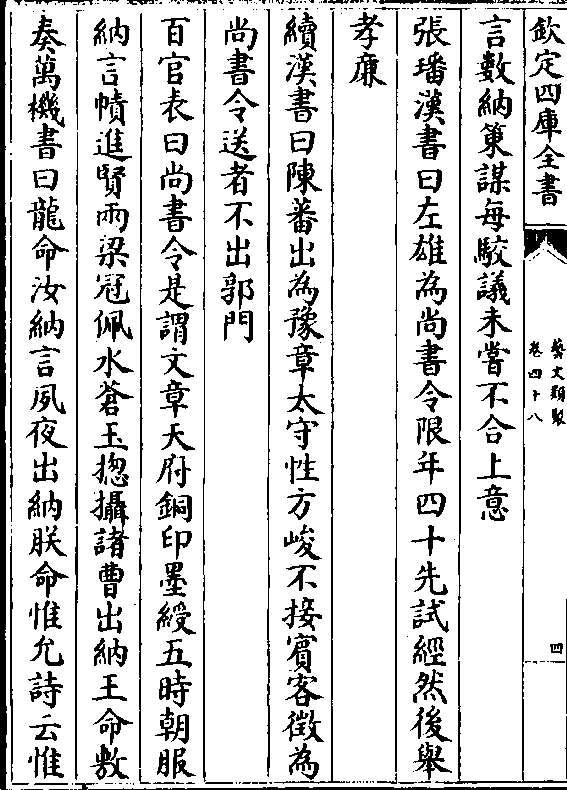 欽定四庫全書
藝文類聚
卷四十八
四
言數納策謀每駮議未嘗不合上意
張璠漢書曰左雄為尚書令限年四十先試經然後舉
孝廉
續漢書曰陳蕃出為豫章太守性方峻不接賓客徵為
尚書令送者不出郭門
百官表曰尚書令是謂文章天府銅印墨綬五時朝服
納言幘進賢兩梁冠佩水蒼玉揔攝諸曹出納王命敷
奏萬機書曰龍命汝納言夙夜出納朕命惟允詩云惟